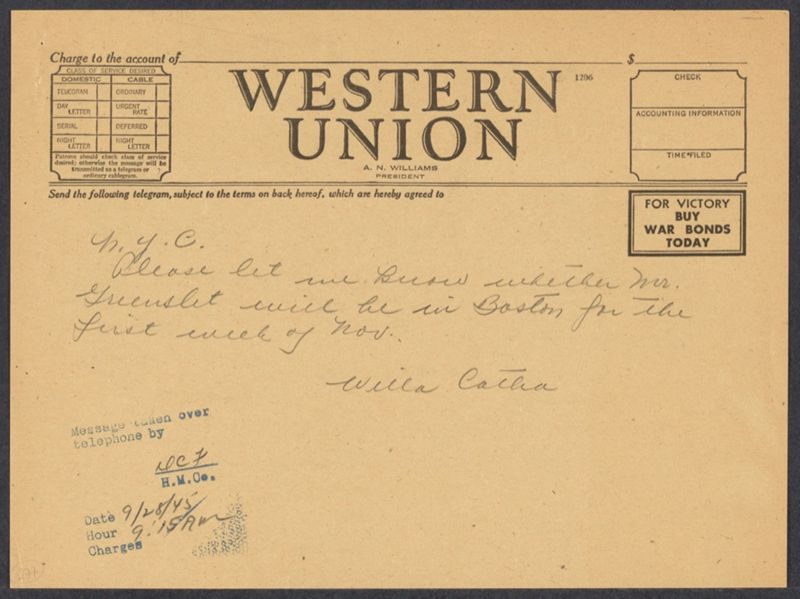 Charge to the account of
$
CLASS OF SERVICE DESIRED
DOMESTIC CABLE
TELEGRAM ORDINARY
DAY LETTER URGENT RATE
SERIAL DEFERRED
NIGHT LETTER NIGHT LETTER
Patrons should check class of service
desired; otherwise the message will be
transmitted as a telegram or
ordinary cablegram.
WESTERN
UNION
1206
A. N. WILLIAMS
PRESIDENT
CHECK
ACCOUNTING INFORMATION
TIME FILED
Send the following telegram, subject to the terms on back hereof, which are hereby agreed to
FOR VICTORY
BUY
WAR BONDS
TODAY
N. Y. C.
Please let me know whether Mr.
Greenslet will be in Boston for the
first week of Nov.
Willa Catha
Message taken over
telephone by
DCF
H.M.Co.
Date 9/28/45
Hour 9:15 AM
Charges